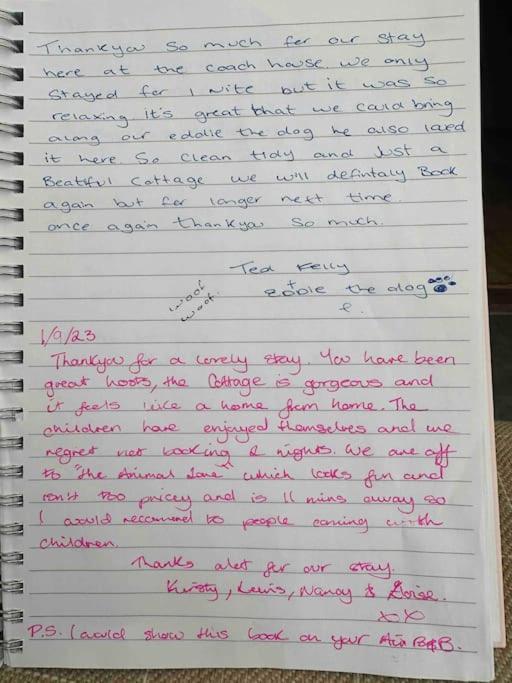 Thankyou so much for our stay
here at the coach house. we only
stayed for 1 nite but it was so
relaxing it's great that we could bring
along our eddie the dog he also loved
it here so clean tidy and just a
Beatiful Cottage we will defintaly Book
again but for longer next time.
once again thankyou so much.
Ted Kelly
+
Eddie the dog
woof
woof.
1/9/23
Thankyou for a lovely stay. You have been
great hosts, the Cottage is gorgeous and
it feels like a home from home. The
children have enjoyed themselves and we
regret not booking 2 nights. We are off
to "the Animal Zone" which looks fun and
isn't too pricey and is 11 mins away so
I would recommend to people coming with
children.
Thanks alot for our stay.
Kirsty, Lewis, Nancy &
xx
P.S. I would show this book on your Air B&B.